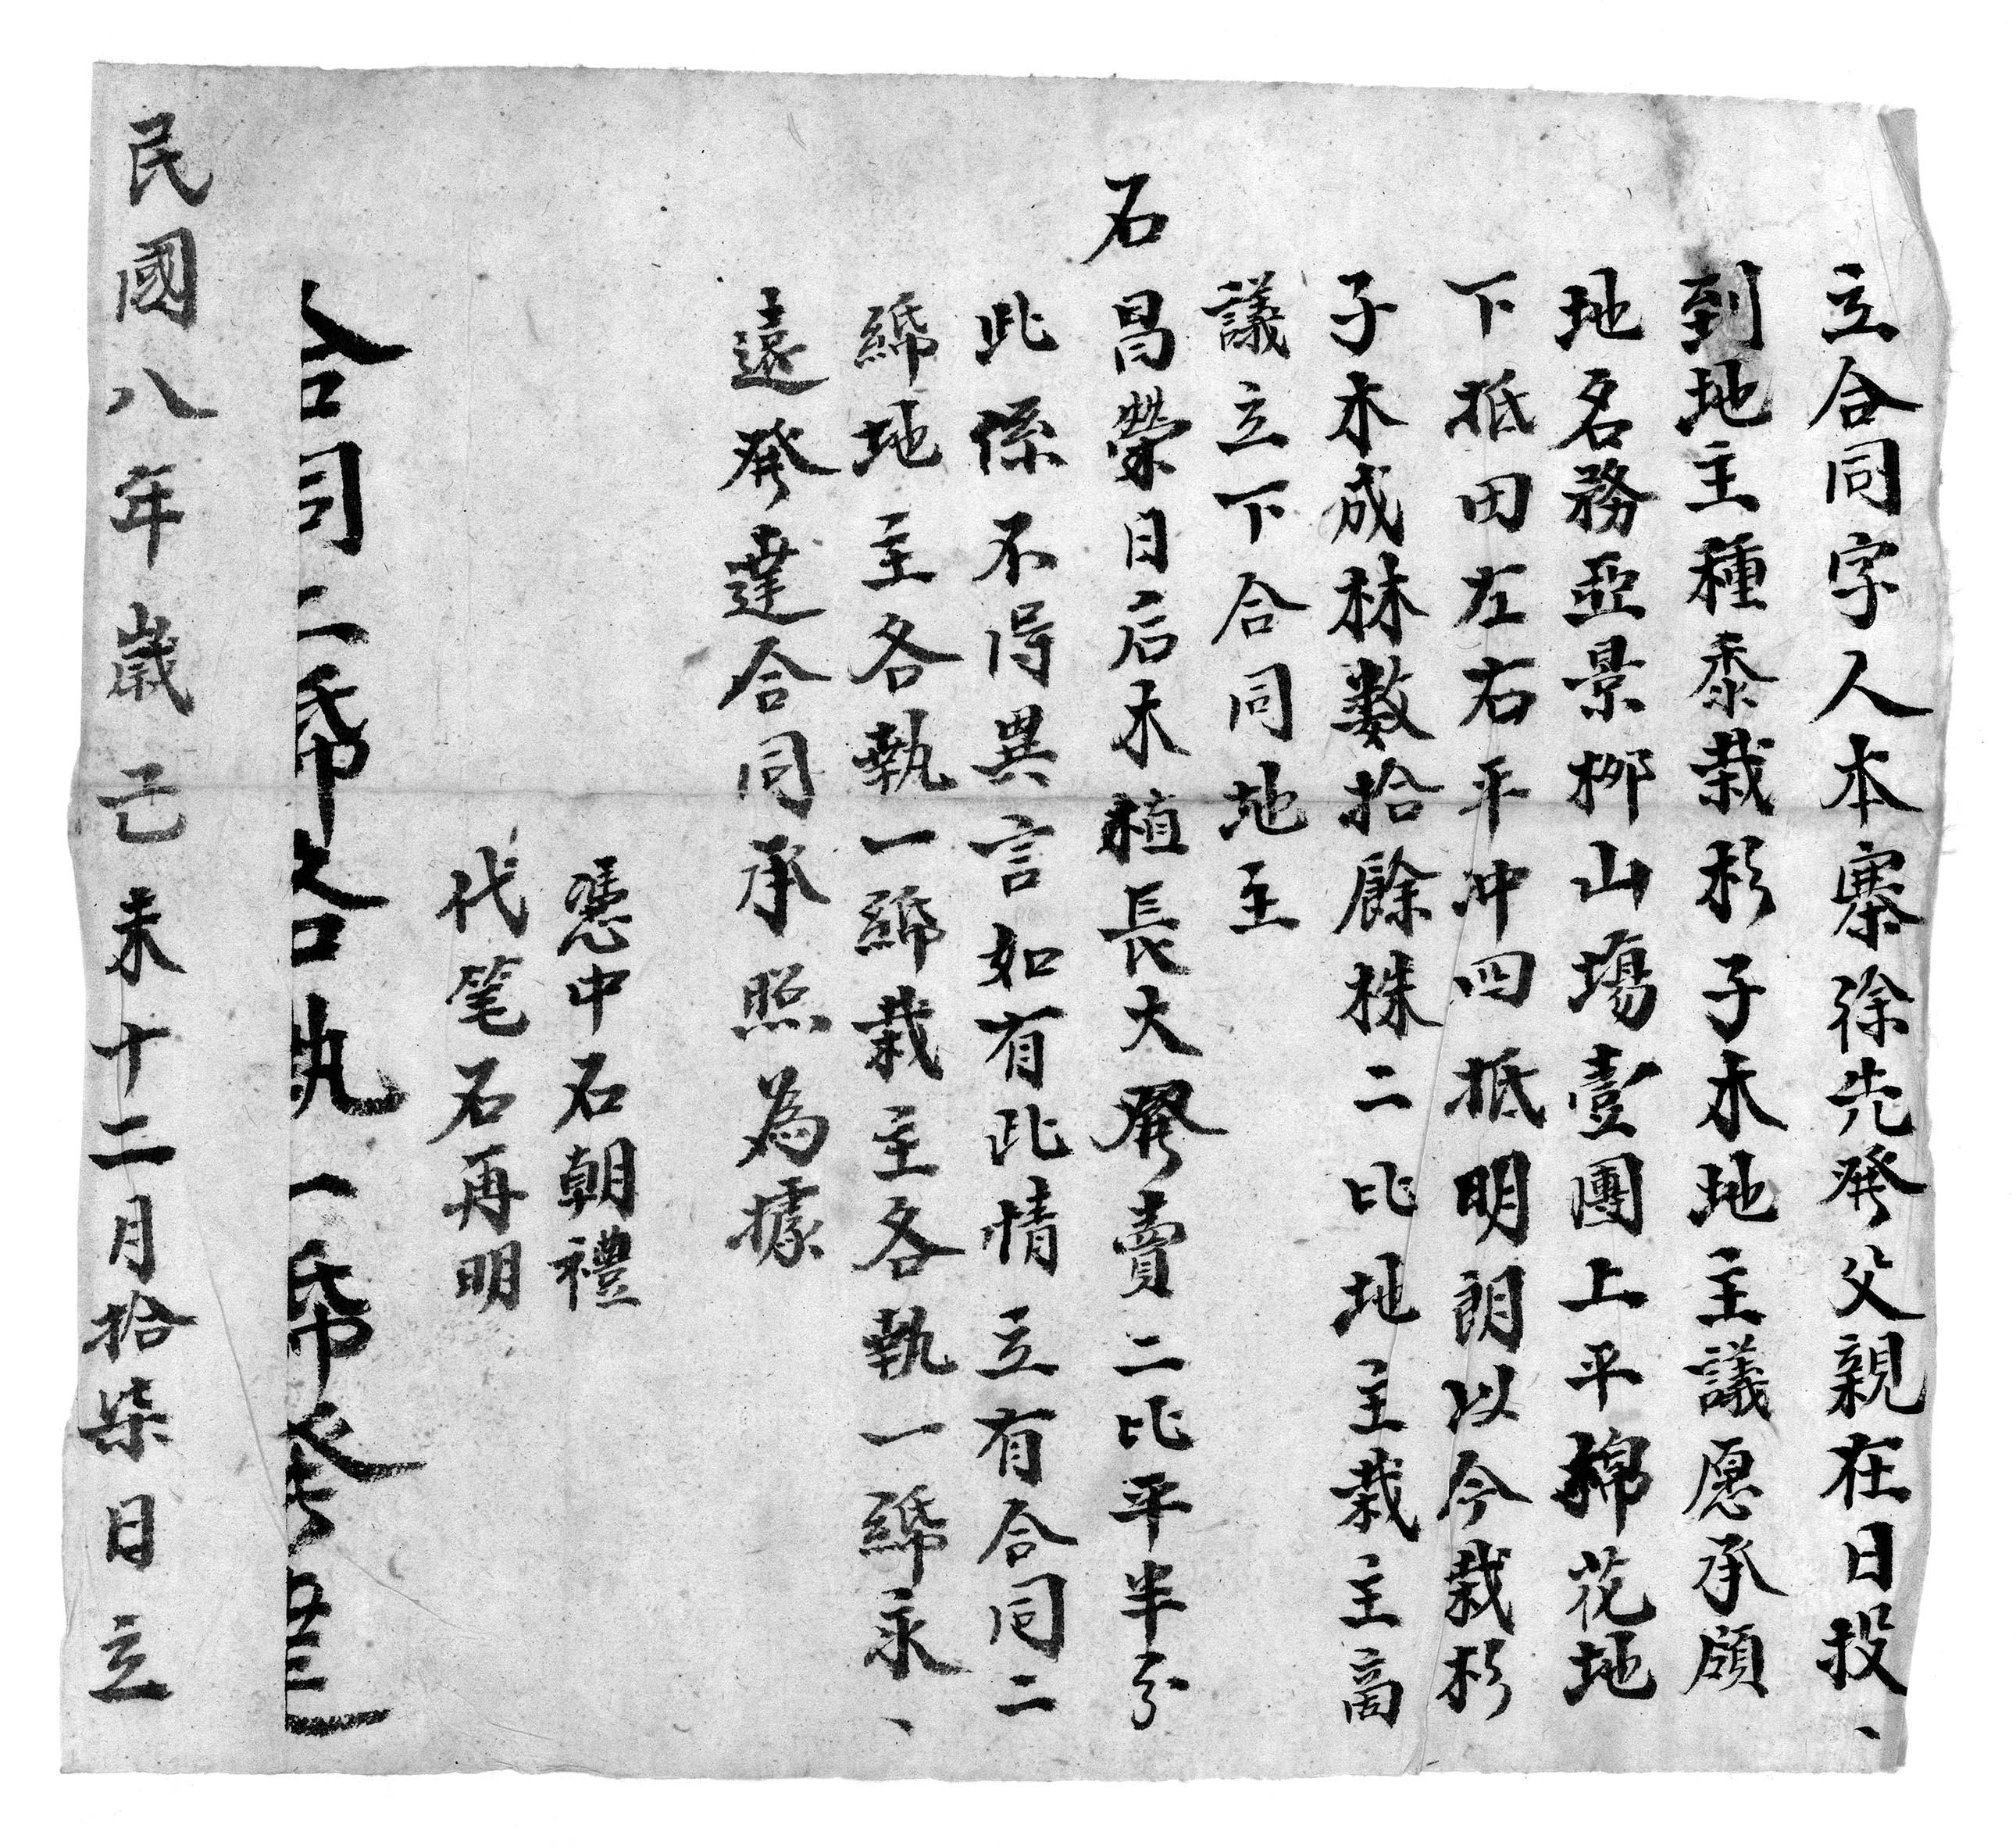 立合同字人本寨徐先發父親在日投、
到地主種黍栽杉子木地主議愿承頋
地名務亞景挷山塲壹團上平棉花地
下抵田左右平冲四抵明朗以今栽杉
子木成林數拾餘株二比地主栽主啇
議立下合同地主
石昌榮日后木植長大發賣二比平半分
此係不得異言如有此情立有合同二
㡧地主各執一㡧栽主各執一㡧永、
遠發達合同承照為據
憑中石朝禮
代笔石再明
合同二㡧各執一㡧發達
民國八年歲己未十二月拾柒日立